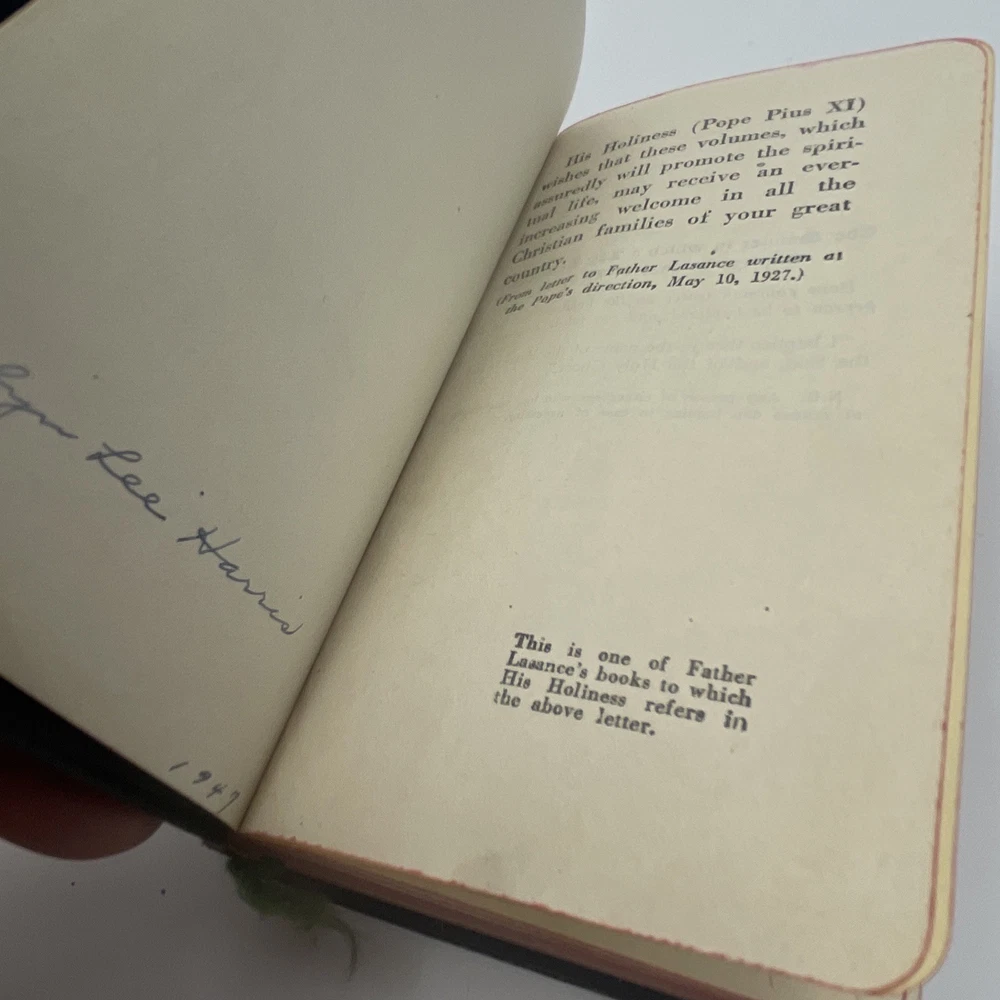 Lee Harris
1947
His Holiness (Pope Pius XI)
wishes that these volumes, which
assuredly will promote the spiri-
tual life, may receive an ever-
increasing welcome in all the
Christian families of your great
country.
(From letter to Father Lasance written at
the Pope's direction, May 10, 1927.)
This is one of Father
Lasance's books to which
His Holiness refers in
the above letter.